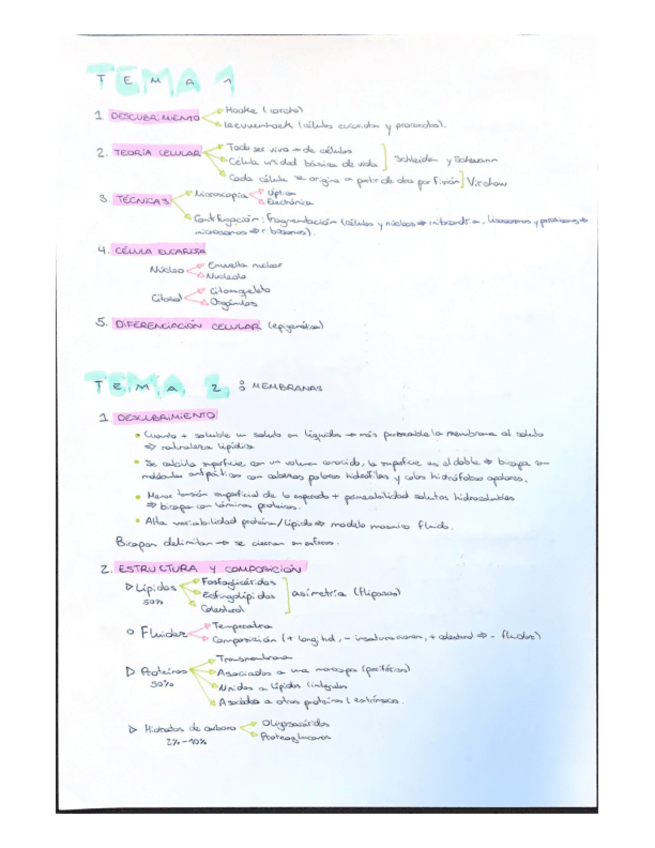 TEMA 1
1. DESCUBRIMIENTO Hooke (corcho)
Leeuwenhoek (células eucariotas y procariotas).
2. TEORÍA CELULAR Todo ser vivo → de células
Célula unidad básica de vida ] Schleiden y Schwann
Cada célula se origina a partir de otra por fisión] Virchow
3. TÉCNICAS Microscopía Óptica
Electrónica
Centrifugación: Fragmentación (células y núcleos ⇒ mitocondrias, lisosomas y peroxisomas ⇒
microsomas ⇒ ribosomas).
4. CÉLULA EUCARIOTA
Núcleo Envuelta nuclear
Nucleolo
Citosol Citoesqueleto
Orgánulos
5. DIFERENCIACIÓN CELULAR (epigenética)
TEMA 2: MEMBRANAS
1. DESCUBRIMIENTO
• Cuanto + soluble un soluto en lípidos → más permeable la membrana al soluto
⇒ naturaleza lipídica
• Se calcula superficie con un volumen conocido, la superficie era el doble ⇒ bicapa con
moléculas anfipáticas con cabezas polares hidrófilas y colas hidrófobas apolares.
• Menor tensión superficial de lo esperado + permeabilidad solutos hidrosolubles
⇒ bicapa con láminas proteicas.
• Alta variabilidad proteína/lípido ⇒ modelo mosaico fluido.
Bicapas delimitan → se cierran en esferas.
2. ESTRUCTURA Y COMPOSICIÓN
▷ Lípidos Fosfoglicéridos
50% Esfingolípidos ] asimetría (flipasas)
Colesterol
○ Fluidez Temperatura
Composición (+ longitud, - insaturaciones, + colesterol ⇒ - fluidez)
▷ Proteínas Transmembrana
50% Asociados a una monocapa (periféricos)
Unidas a lípidos (integrales
Asociadas a otras proteínas (extrínsecas.
▷ Hidratos de carbono Oligosacáridos
2%-10% Proteoglucanos